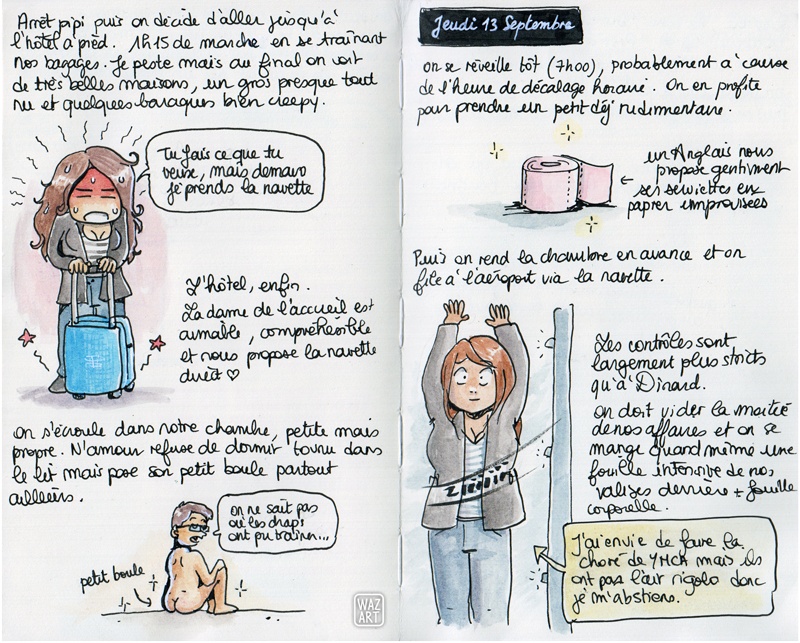 Arrêt pipi puis on décide d'aller jusqu'à
l'hôtel à pied. 1h15 de marche en se traînant
nos bagages. Je peste mais au final on voit
de très belles maisons, un gros presque tout
nu et quelques baraques bien creepy.
Tu fais ce que tu
veux, mais demain
je prends la navette
L'hôtel, enfin.
La dame de l'accueil est
aimable, compréhensible
et nous propose la navette
direct ♡
On s'écroule dans notre chambre, petite mais
propre. N'amour refuse de dormir tout nu dans
le lit mais pose son petit boule partout
ailleurs.
on ne sait pas
où les draps
ont pu traîner...
petit boule
WAZ
ART
Jeudi 13 Septembre
On se réveille tôt (7h00), probablement à cause
de l'heure de décalage horaire. On en profite
pour prendre un petit déj rudimentaire.
un Anglais nous
propose gentiment
ses serviettes en
papier improvisées
Puis on rend la chambre en avance et on
file à l'aéroport via la navette.
Les contrôles sont
largement plus stricts
qu'à Dinard.
On doit vider la moitié
de nos affaires et on se
mange quand même une
fouille intensive de nos
valises derrière + fouille
corporelle.
J'ai envie de faire la
choré de YMCA mais ils
ont pas l'air rigolo donc
je m'abstiens.